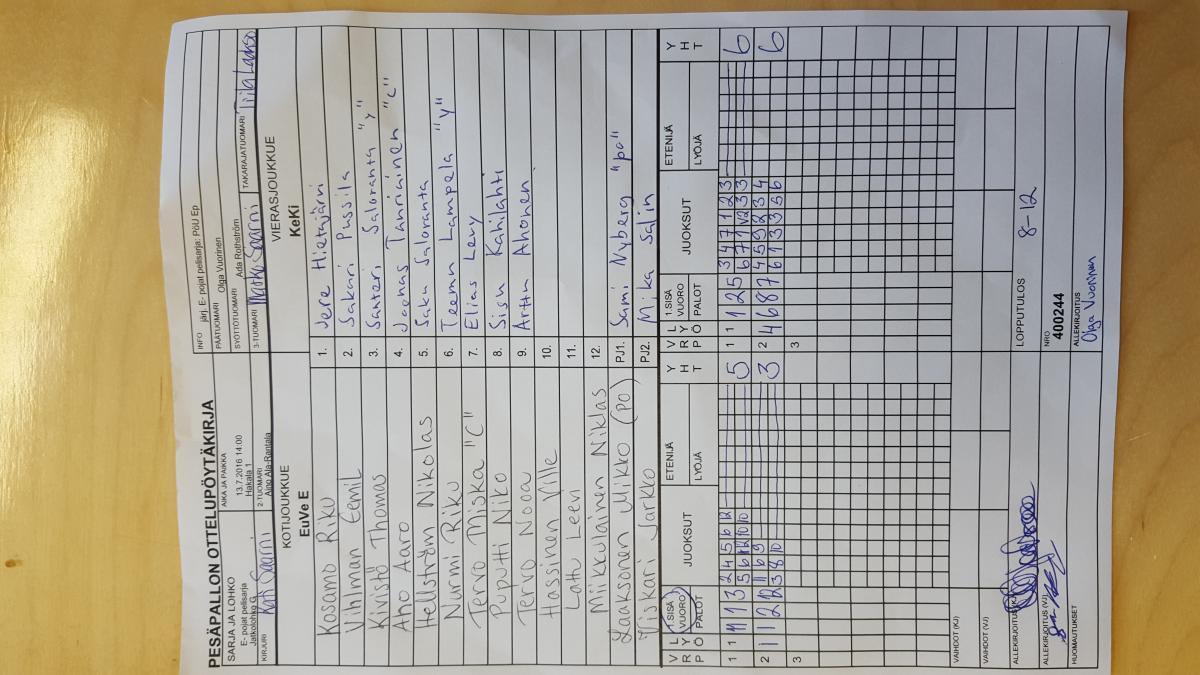 PESÄPALLON OTTELUPÖYTÄKIRJA
INFO järj. E- pojat pelisarja: PöU Ep
SARJA JA LOHKO
E- pojat pelisarja
Jatkolohko G
AIKA JA PAIKKA
13.7.2016 14:00
Hakala 1
PÄÄTUOMARI Olga Vuorinen
SYÖTTÖTUOMARI Ada Rothström
KIRJURI Kati Saarni
2-TUOMARI
Aino Ala-Rantala
3-TUOMARI Marko Saarni
TAKARAJATUOMARI Tiila Laakso
KOTIJOUKKUE
EuVe E
VIERASJOUKKUE
KeKi
Kosamo Riku 1. Jere Hietajärvi
Vihlman Eemil 2. Sakari Pussila
Kivistö Thomas 3. Santeri Saloranta "y"
Aho Aaro 4. Joonas Tanniainen "c"
Hellström Nikolas 5. Saku Saloranta
Nurmi Riku 6. Teemu Lampela "y"
Tervo Miska "C" 7. Elias Levy
Puputti Niko 8. Sisu Kahilahti
Tervo Nooa 9. Arttu Ahonen
Hassinen Ville 10.
Lattu Leevi 11.
Miikkulainen Niklas 12.
Laaksonen Mikko (PO) PJ1. Sami Nyberg "po"
Viskari Jarkko PJ2. Mika Salin
VRP LYÖ 1.SISÄ VUORO PALOT JUOKSUT ETENIJÄ LYÖJÄ YHT
VRP LYÖ 1.SISÄ VUORO PALOT JUOKSUT ETENIJÄ LYÖJÄ YHT
1 1 11 1 3 2 4 5 6 12 5
5 6 12 10 10
1 1 1 2 5 3 4 7 1 2 3 6
6 7 1 12 3 3
2 1 1 2 12 11 6 9 3
3 8 10
2 4 6 8 7 4 5 9 2 3 4 6
6 1 3 3 5 6
3
3
VAIHDOT (KJ)
VAIHDOT (VJ)
ALLEKIRJOITUS (KJ)
LOPPUTULOS 8-12
ALLEKIRJOITUS (VJ)
NRO
400244
HUOMAUTUKSET
ALLEKIRJOITUS
Olga Vuorinen